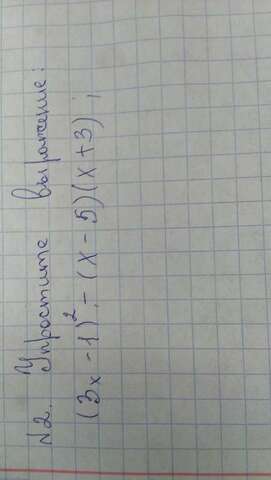 №2. Упростите выражение:
(3x - 1)² - (x - 5)(x + 3);